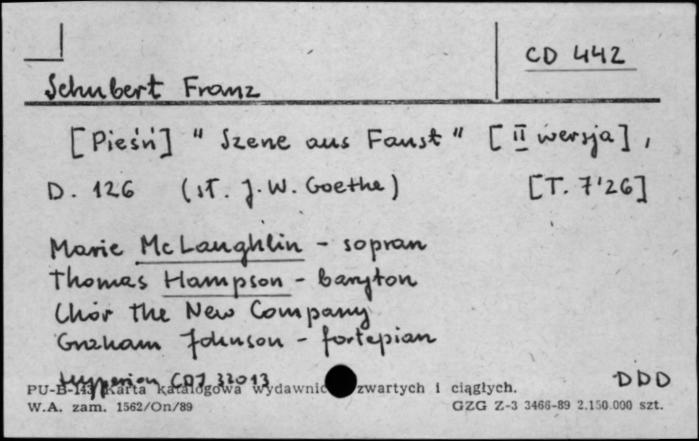 CD 442
Schubert Franz
[Pieśń] "Szene aus Faust" [II wersja],
D. 126 (sł. J. W. Goethe) [T. 7'26]
Marie McLaughlin - sopran
Thomas Hampson - baryton
Chór The New Company
Graham Johnson - fortepian
Hyperion CDJ 33013 DDD
PU-B-143 Karta katalogowa wydawnic zwartych i ciągłych.
W.A. zam. 1562/On/89 GZG Z-3 3466-89 2.150.000 szt.